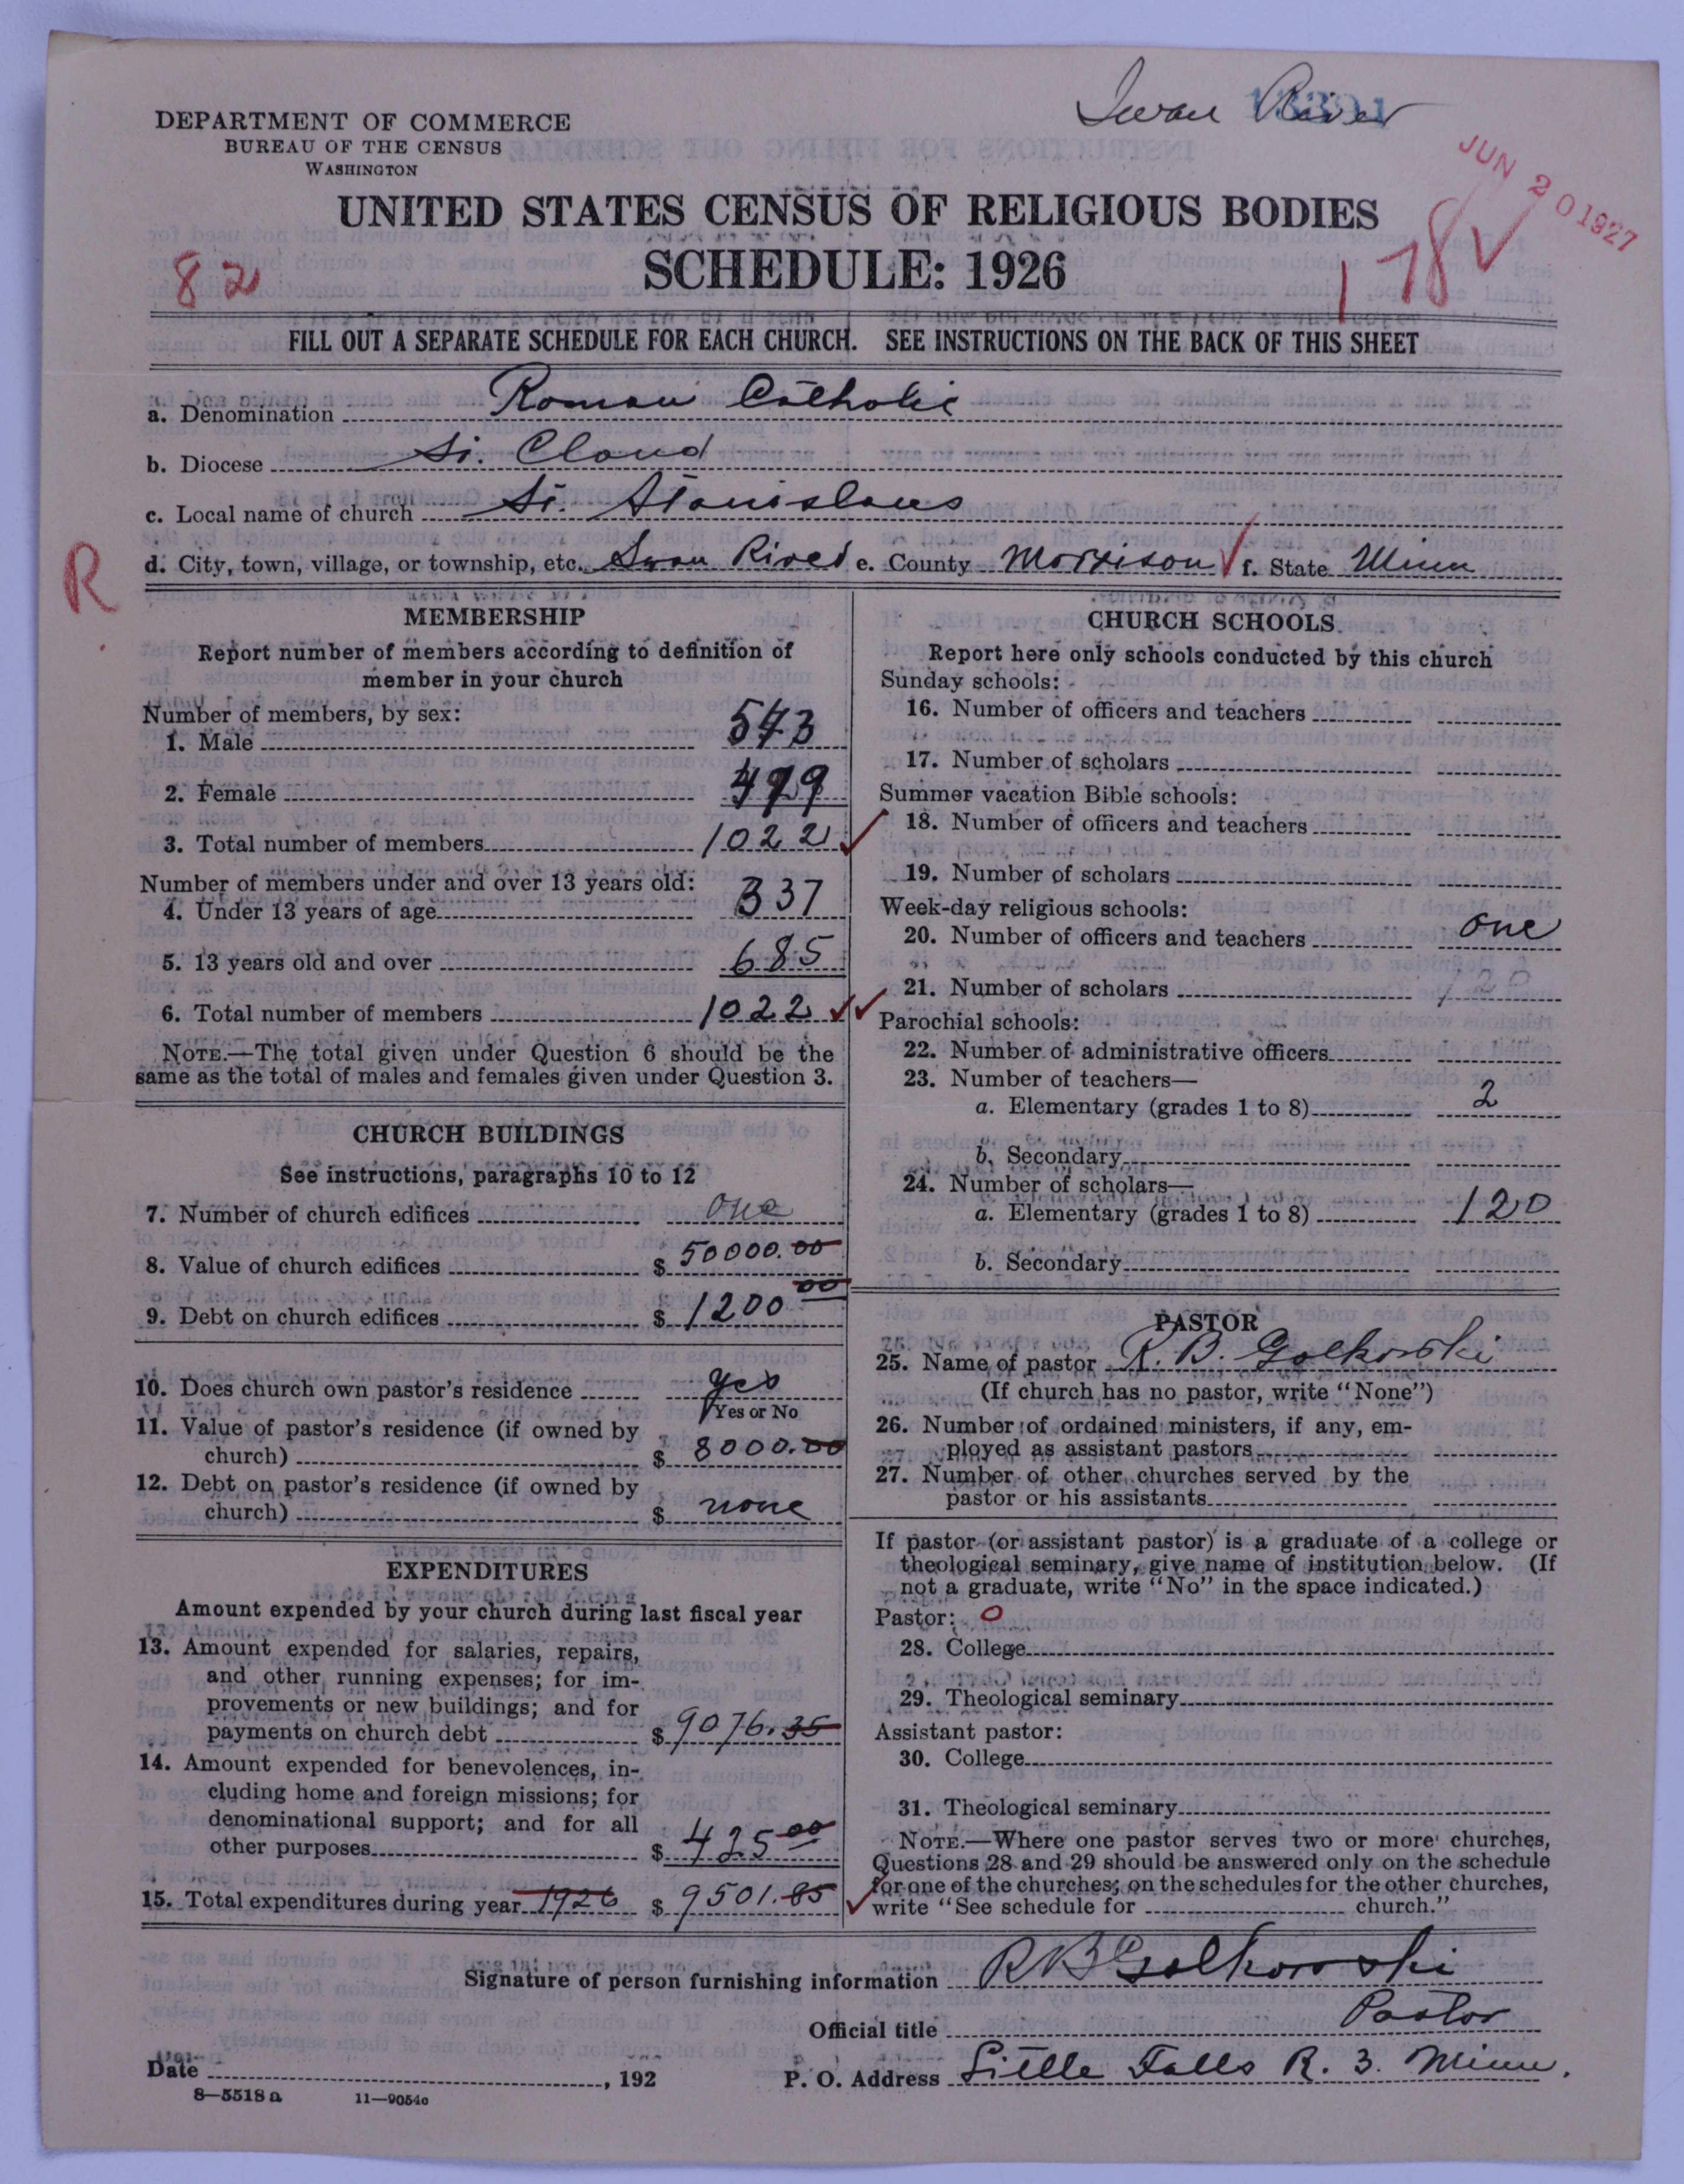 Swan River
DEPARTMENT OF COMMERCE
BUREAU OF THE CENSUS
WASHINGTON
JUN 20 1927
UNITED STATES CENSUS OF RELIGIOUS BODIES
SCHEDULE: 1926
82
178
FILL OUT A SEPARATE SCHEDULE FOR EACH CHURCH. SEE INSTRUCTIONS ON THE BACK OF THIS SHEET
a. Denomination Roman Catholic
b. Diocese St. Cloud
c. Local name of church St. Stanislaus
d. City, town, village, or township, etc. Swan River e. County Morrison f. State Minn
R
MEMBERSHIP
Report number of members according to definition of
member in your church
Number of members, by sex:
1. Male 543
2. Female 479
3. Total number of members 1022
Number of members under and over 13 years old:
4. Under 13 years of age 337
5. 13 years old and over 685
6. Total number of members 1022
NOTE.—The total given under Question 6 should be the
same as the total of males and females given under Question 3.
CHURCH BUILDINGS
See instructions, paragraphs 10 to 12
7. Number of church edifices one
8. Value of church edifices $ 50000.00
9. Debt on church edifices $ 1200 00
10. Does church own pastor's residence yes
Yes or No
11. Value of pastor's residence (if owned by
church) $ 8000.00
12. Debt on pastor's residence (if owned by
church) $ none
EXPENDITURES
Amount expended by your church during last fiscal year
13. Amount expended for salaries, repairs,
and other running expenses; for im-
provements or new buildings; and for
payments on church debt $ 9076.35
14. Amount expended for benevolences, in-
cluding home and foreign missions; for
denominational support; and for all
other purposes $ 425 00
15. Total expenditures during year 1926 $ 9501.85
CHURCH SCHOOLS
Report here only schools conducted by this church
Sunday schools:
16. Number of officers and teachers
17. Number of scholars
Summer vacation Bible schools:
18. Number of officers and teachers
19. Number of scholars
Week-day religious schools:
20. Number of officers and teachers one
21. Number of scholars 120
Parochial schools:
22. Number of administrative officers
23. Number of teachers—
a. Elementary (grades 1 to 8) 2
b. Secondary
24. Number of scholars—
a. Elementary (grades 1 to 8) 120
b. Secondary
PASTOR
25. Name of pastor R. B. Golkowski
(If church has no pastor, write "None")
26. Number of ordained ministers, if any, em-
ployed as assistant pastors
27. Number of other churches served by the
pastor or his assistants
If pastor (or assistant pastor) is a graduate of a college or
theological seminary, give name of institution below. (If
not a graduate, write "No" in the space indicated.)
Pastor: 0
28. College
29. Theological seminary
Assistant pastor:
30. College
31. Theological seminary
NOTE.—Where one pastor serves two or more churches,
Questions 28 and 29 should be answered only on the schedule
for one of the churches; on the schedules for the other churches,
write "See schedule for church."
Signature of person furnishing information R B Golkowski
Official title Pastor
Date , 192 P. O. Address Little Falls R. 3. Minn.
8—5518a 11—9054c